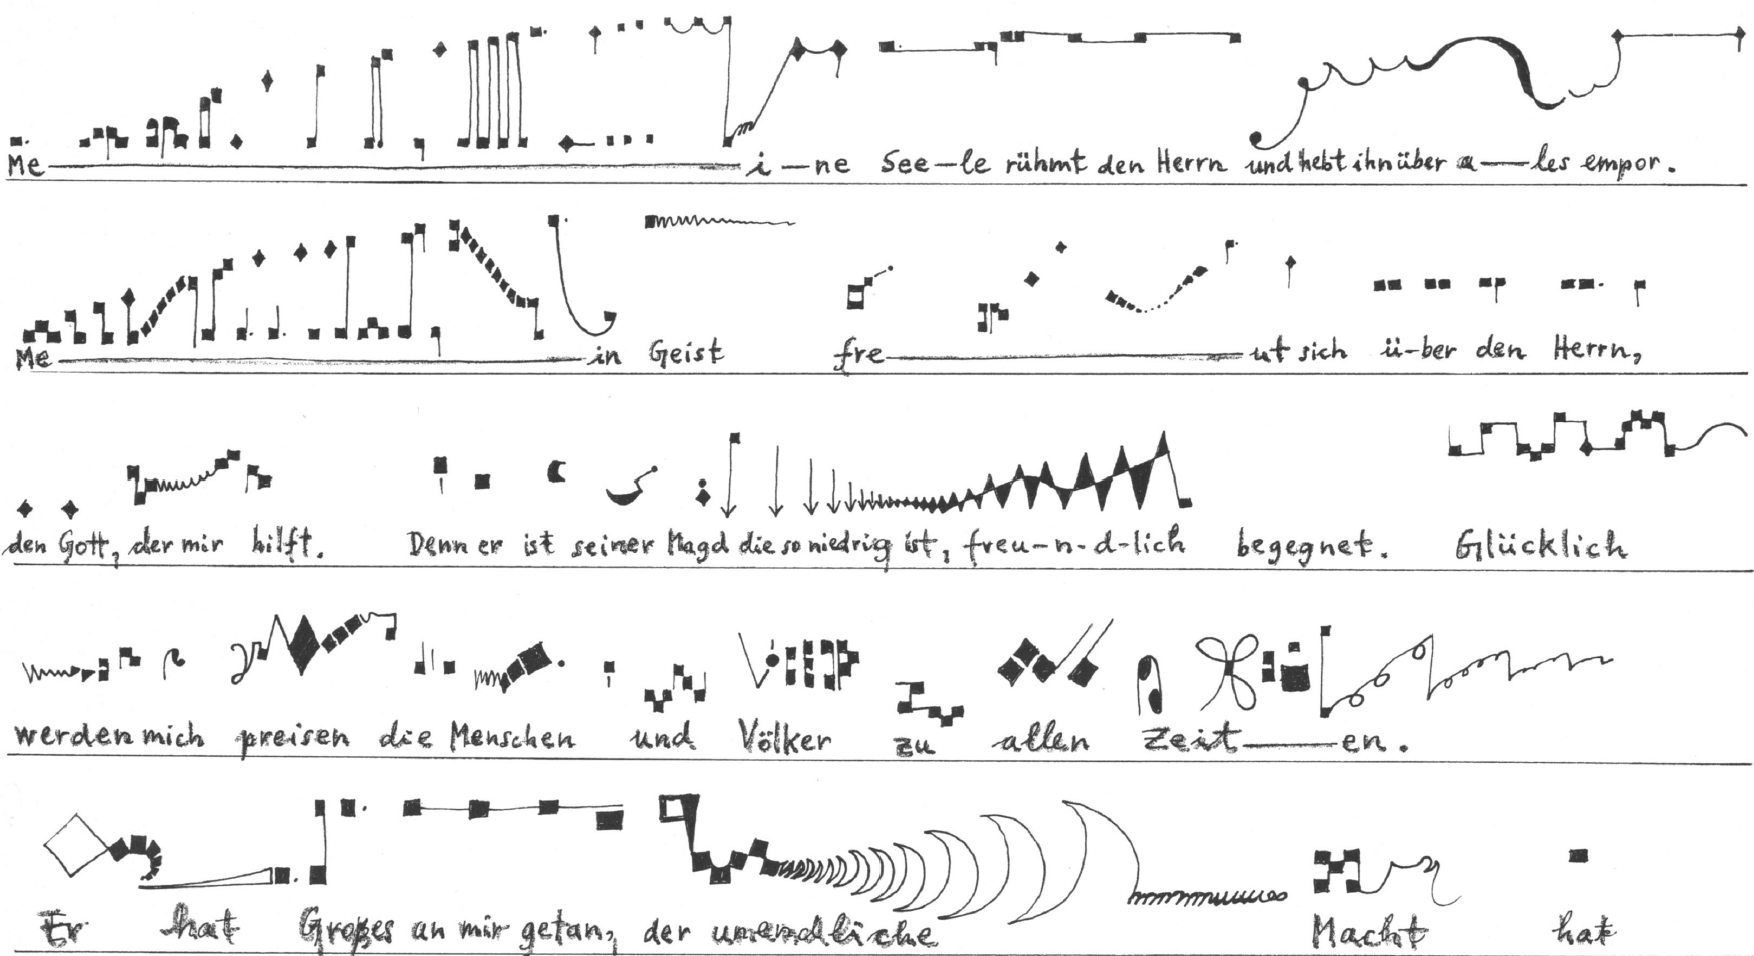 Me———i—ne See—le rühmt den Herrn und hebt ihn über a——les empor.
Me———in Geist fre———ut sich ü-ber den Herrn,
den Gott, der mir hilft. Denn er ist seiner Magd die so niedrig ist, freu-n-d-lich begegnet. Glücklich
werden mich preisen die Menschen und Völker zu allen Zeit——en.
Er hat Großes an mir getan, der unendliche Macht hat